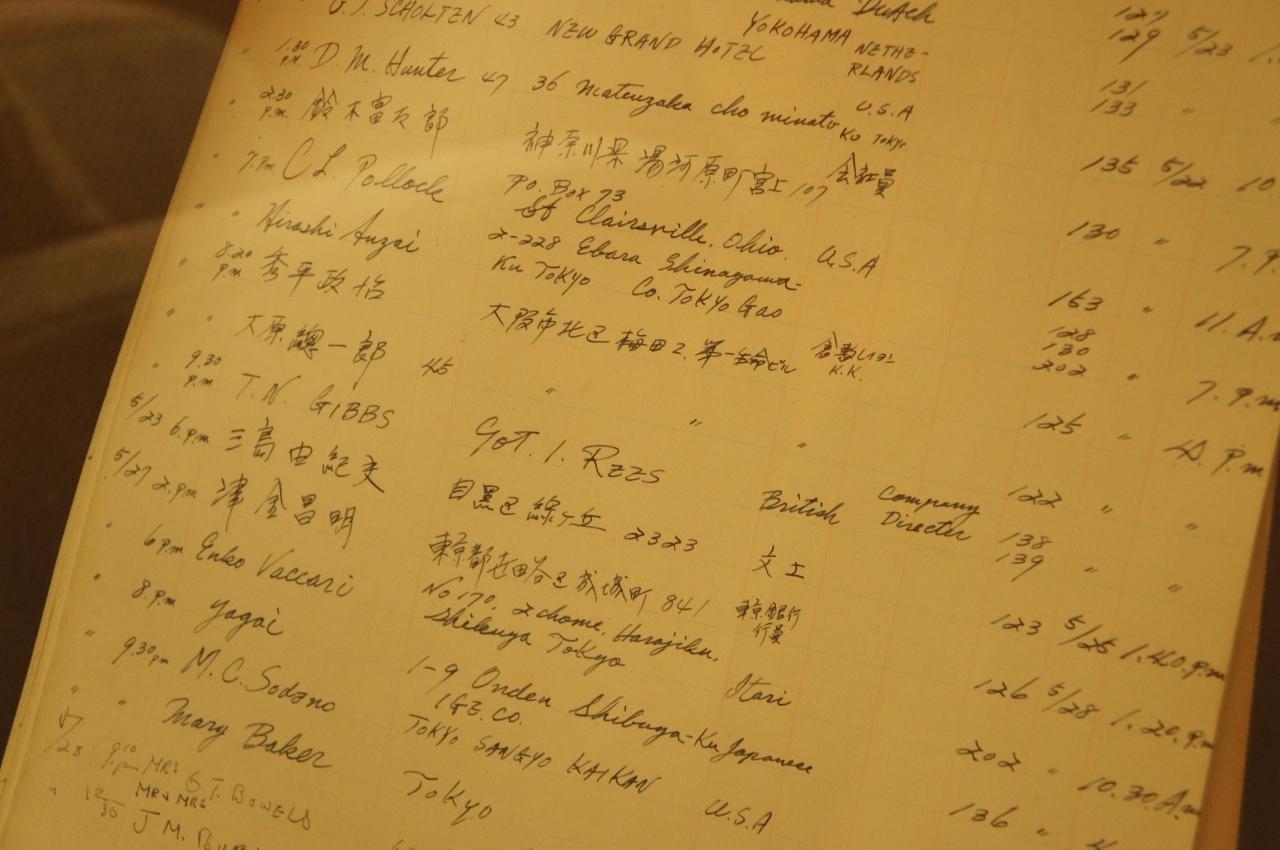 G. J. SCHOLTEN 43 NEW GRAND HOTEL YOKOHAMA NETHE-RLANDS 129 5/23
1.30 P.M. D. M. Hunter 47 36 Matsuzaka cho minato Ku Tokyo U.S.A 131 133 "
" 2.30 P.m. 鈴木富次郎 神奈川県湯河原町宮上107 会社員 135 5/22 10
" 7. Pm C L. Pollock P.O. Box 73 St Clairsville, Ohio. U.S.A 130 " 7. P.
" " Hiroshi Anzai 2-228 Ebara Shinagawa-Ku TOKYO Co. TOKYO Gas 163 " 11. A.m
" 8.20 P.m. 秀平政治 大阪市北区梅田2. 第一生命ビル 倉敷レイヨン K.K. 128 130 202 " 7. P.m
" " 大原總一郎 45 " " " 125 " 4. P.m
" 9.30 P.m. T. N. GIBBS British Company Director 122 " "
5/23 6. P.m 三島由紀夫 目黒区緑ヶ丘 2323 文士 138 139 " "
5/27 2. P.m 津金昌明 東京都世田谷区成城町 841 東京銀行行員 123 5/25 1.40.P.m
" 6 P.m Enko Vaccari No 170, 2 chome, Harajiku, Shibuya Tokyo Itari 126 5/28 1.20.P.m
" 8. P.m Yagai 1-9 Onden Shibuya-Ku Japanese 202 " 10.30.A.m
" 9.30 Pm M. C. Sodano IGE. CO. TOKYO SANGYO KAIKAN U.S.A 136 "
" " Mary Baker Tokyo
5/28 9.10 pm MRS G T. BOWELS
" 12 30 MR & MRS J M.